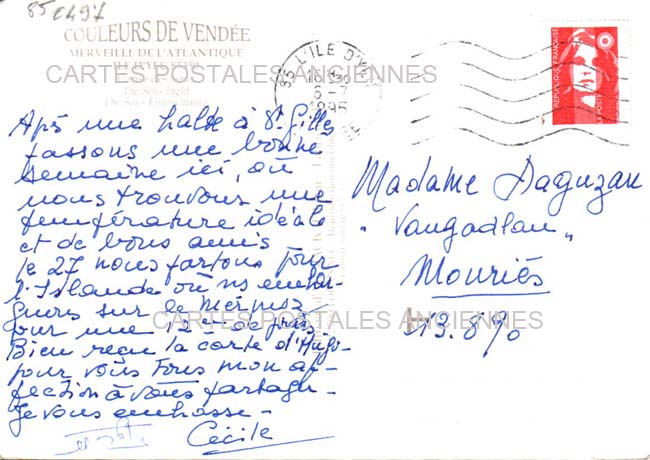 85 2497
COULEURS DE VENDÉE
MERVEILLE DE L'ATLANTIQUE
ILE D'YEU 85350
CARTES POSTALES ANCIENNES
The Sous light
85 L'ILE D'YEU
6-7
1995
RÉPUBLIQUE FRANÇAISE
LA POSTE
Apś une halte à St Gilles
passons une bonne
semaine ici, où
nous trouvons une
température idéale
et de bons amis
le 27 nous partons pour
l'Islande où ns embar-
quons sur le Mermoz
pour une
Bien reçu la carte d'Hugo-
pour vous tous mon af-
fection à vous partager-
Je vous embrasse-
Cécile
Madame Daguzan
"
Mouriès
CARTES POSTALES ANCIENNES
13.890